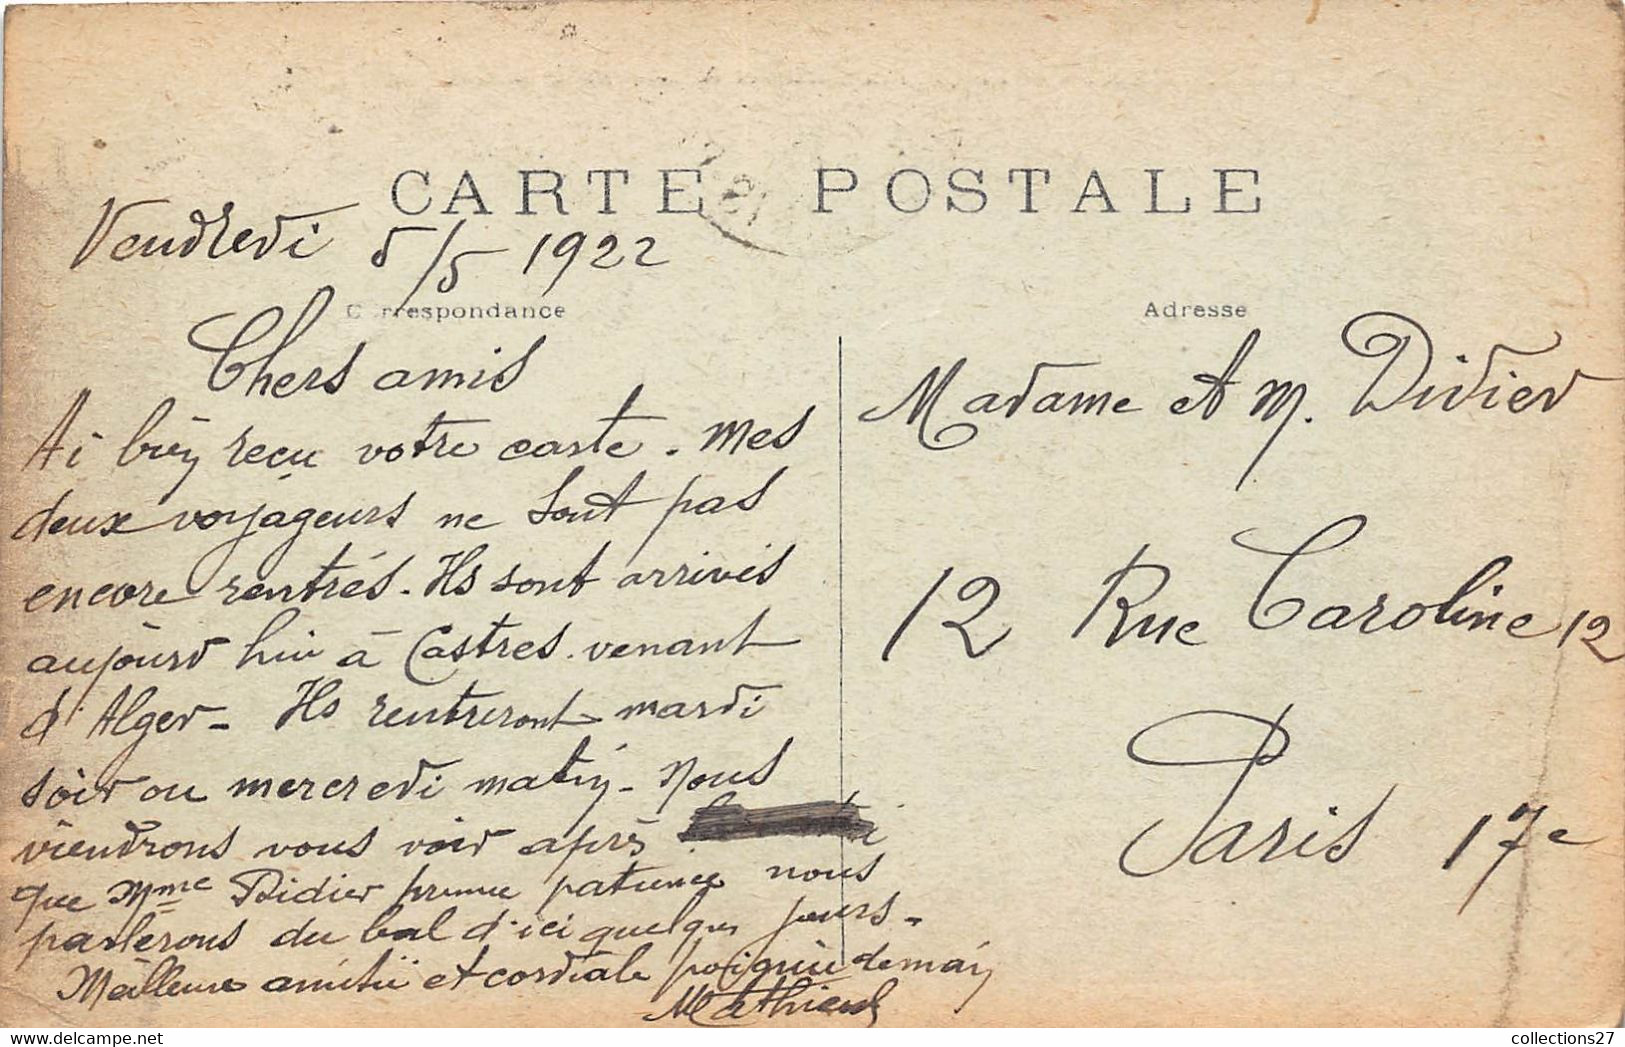 CARTE POSTALE
Vendredi 5/5 1922
Correspondance
Chers amis
Ai bien reçu votre carte. Mes
deux voyageurs ne sont pas
encore rentrés. Ils sont arrivés
aujourd'hui à Castres venant
d'Alger - Ils rentreront mardi
soir ou mercredi matin - Nous
viendrons vous voir après
que Mme Didier prenne patience nous
parlerons du bal d'ici quelques jours -
Meilleure amitié et cordiale poignée de main
Mathieu
Adresse
Madame et M. Didier
12 Rue Caroline 12
Paris 17e
collections27